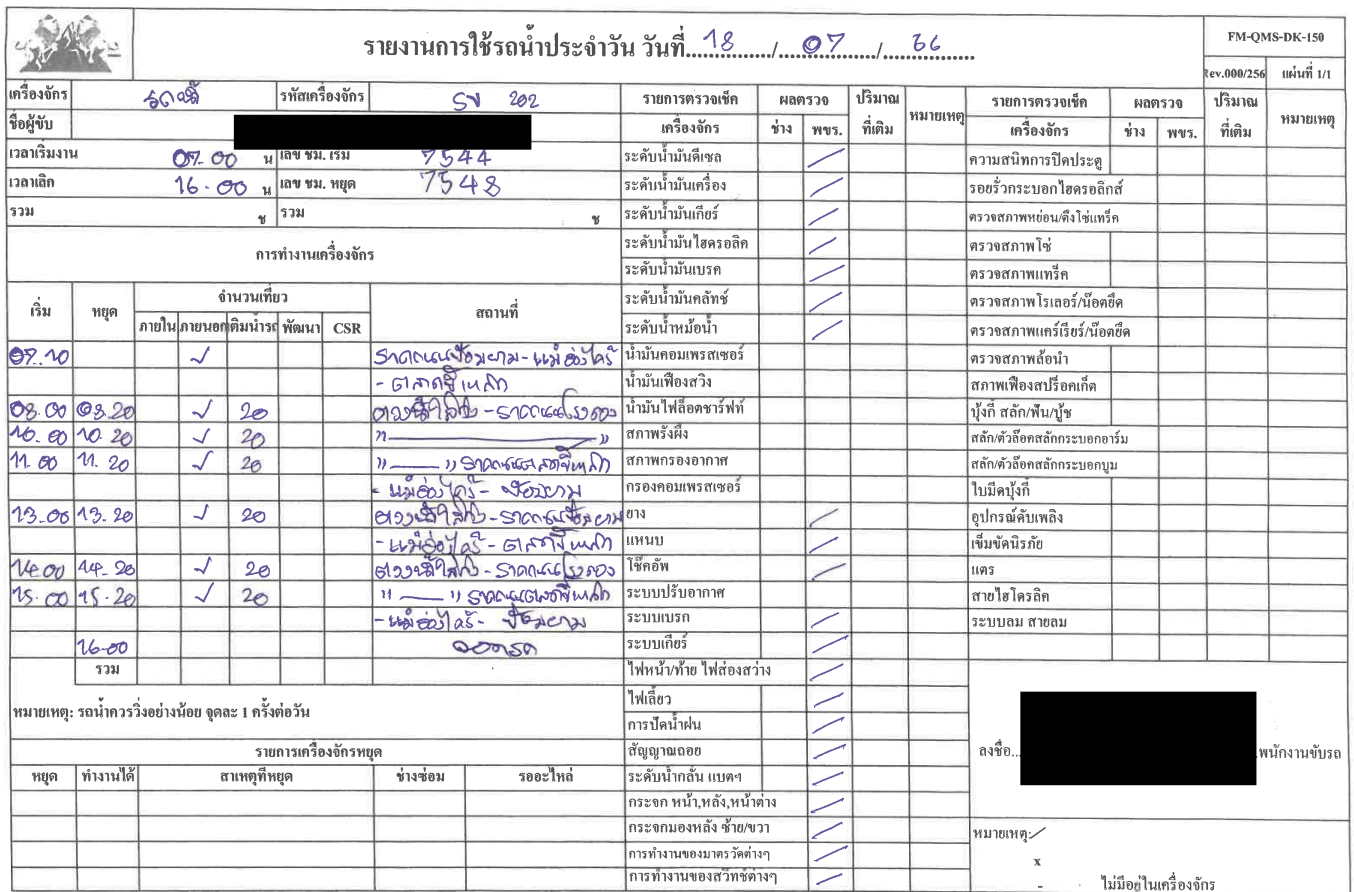 รายงานการใช้รถน้ำประจำวัน วันที่ 18 / 07 / 66
FM-QMS-DK-150
Rev.000/256 แผ่นที่ 1/1
เครื่องจักร รถน้ำ รหัสเครื่องจักร รข 202
ชื่อผู้ขับ
เวลาเริ่มงาน 07.00 น เลข ชม. เริ่ม 7544
เวลาเลิก 16.00 น เลข ชม. หยุด 7548
รวม ช รวม ช
การทำงานเครื่องจักร
เริ่ม หยุด จำนวนเที่ยว สถานที่
ภายใน ภายนอก เติมน้ำรถ พัฒนา CSR
07.10 ✓ ราดถนนป้อมยาม-แม่ฮ่องไคร้
- ตลาดขี้เหล็ก
08.00 08.20 ✓ 20 ดวงน้ำใส่ถัง - ราดถนนโรงกอง
10.00 10.20 ✓ 20 " ——— "
11.00 11.20 ✓ 20 " — " ราดถนนตลาดขี้เหล็ก
- แม่ฮ่องไคร้ - ป้อมยาม
13.00 13.20 ✓ 20 ดวงน้ำใส่ถัง - ราดถนนป้อมยาม
- แม่ฮ่องไคร้ - ตลาดขี้เหล็ก
14.00 14.20 ✓ 20 ดวงน้ำใส่ถัง - ราดถนนโรงกอง
15.00 15.20 ✓ 20 " — " ราดถนนตลาดขี้เหล็ก
- แม่ฮ่องไคร้ - ป้อมยาม
16.00 จอดรถ
รวม
หมายเหตุ: รถน้ำควรวิ่งอย่างน้อย จุดละ 1 ครั้งต่อวัน
รายการเครื่องจักรหยุด
หยุด ทำงานได้ สาเหตุที่หยุด ช่างซ่อม รออะไหล่
รายการตรวจเช็ค ผลตรวจ ปริมาณ หมายเหตุ
เครื่องจักร ช่าง พขร. ที่เติม
ระดับน้ำมันดีเซล /
ระดับน้ำมันเครื่อง /
ระดับน้ำมันเกียร์ /
ระดับน้ำมันไฮดรอลิค /
ระดับน้ำมันเบรค /
ระดับน้ำมันคลัทช์ /
ระดับน้ำหม้อน้ำ /
น้ำมันคอมเพรสเซอร์
น้ำมันเฟืองสวิง
น้ำมันไฟล็อตชาร์ฟท์
สภาพรังผึ้ง
สภาพกรองอากาศ
กรองคอมเพรสเซอร์
ยาง /
แหนบ /
โช๊คอัพ /
ระบบปรับอากาศ
ระบบเบรก /
ระบบเกียร์ /
ไฟหน้า/ท้าย ไฟส่องสว่าง /
ไฟเลี้ยว /
การปัดน้ำฝน /
สัญญาณถอย /
ระดับน้ำกลั่น แบตฯ /
กระจก หน้า,หลัง,หน้าต่าง /
กระจกมองหลัง ซ้าย/ขวา /
การทำงานของมาตรวัดต่างๆ /
การทำงานของสวิทช์ต่างๆ /
รายการตรวจเช็ค ผลตรวจ ปริมาณ หมายเหตุ
เครื่องจักร ช่าง พขร. ที่เติม
ความสนิทการปิดประตู
รอยรั่วกระบอกไฮดรอลิกส์
ตรวจสภาพหย่อน/ตึงโซ่แทร็ค
ตรวจสภาพโซ่
ตรวจสภาพแทร็ค
ตรวจสภาพโรเลอร์/น๊อตยึด
ตรวจสภาพแคร์เรียร์/น๊อตยึด
ตรวจสภาพล้อนำ
สภาพเฟืองสปร็อคเก็ต
บุ้งกี้ สลัก/ฟัน/บู้ช
สลัก/ตัวล๊อคสลักกระบอกอาร์ม
สลัก/ตัวล๊อคสลักกระบอกบูม
ใบมีดบุ้งกี้
อุปกรณ์ดับเพลิง
เข็มขัดนิรภัย
แตร
สายไฮโดรลิค
ระบบลม สายลม
ลงชื่อ... พนักงานขับรถ
หมายเหตุ: /
x
- ไม่มีอยู่ในเครื่องจักร